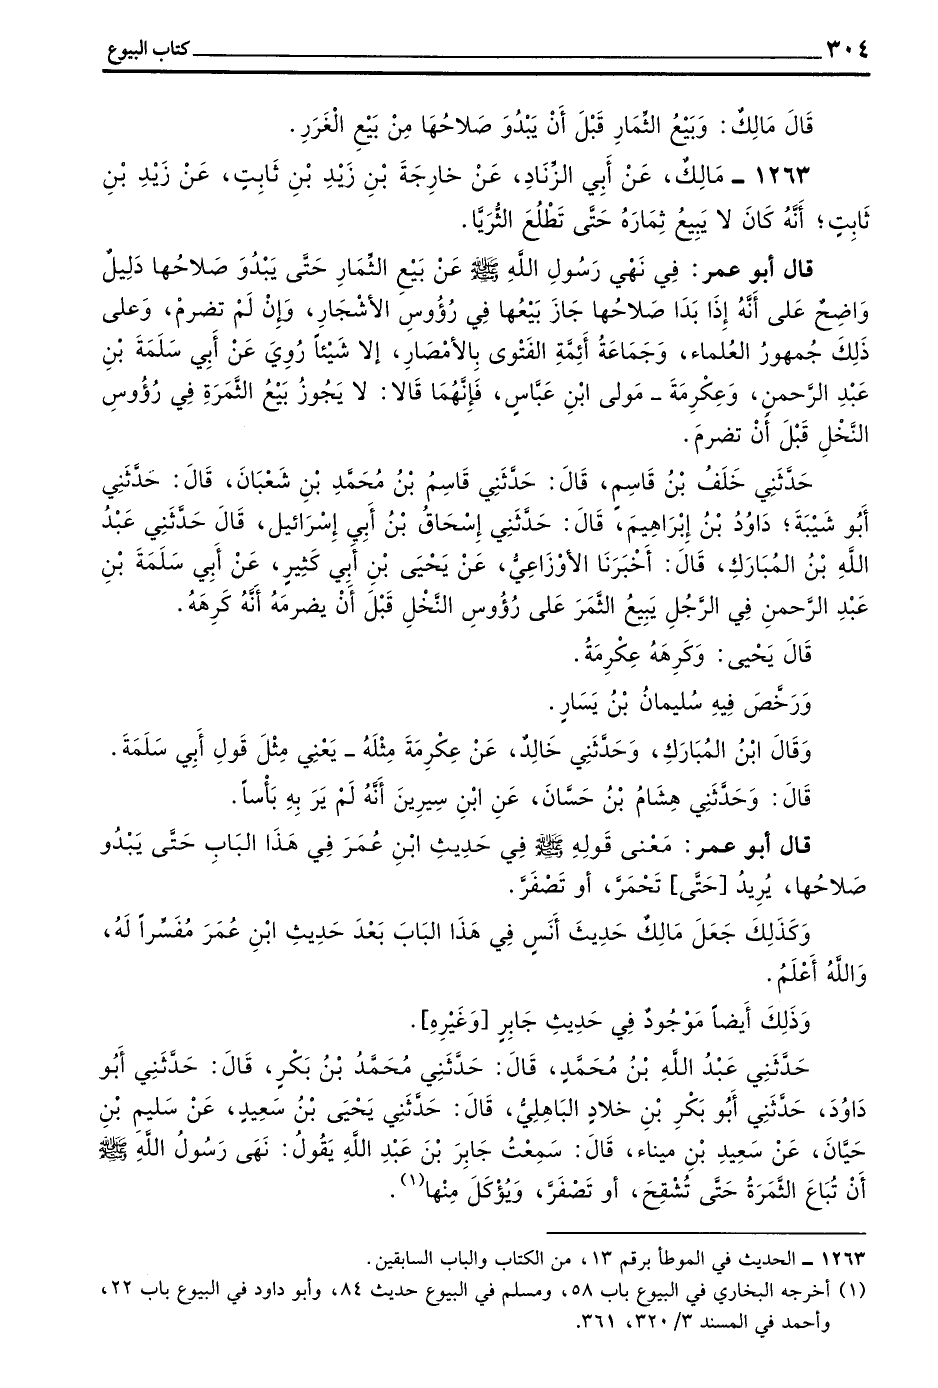 ٣٠٤ كتاب البيوع
قَالَ مَالِكٌ: وَبَيْعُ الثِّمَارِ قَبْلَ أَنْ يَبْدُوَ صَلاحُهَا مِنْ بَيْعِ الْغَرَرِ.
١٢٦٣ ـ مَالِكٌ، عَنْ أَبِي الزِّنَادِ، عَنْ خارِجَةَ بْنِ زَيْدِ بْنِ ثَابِتٍ، عَنْ زَيْدِ بْنِ
ثَابِتٍ؛ أَنَّهُ كَانَ لا يَبِيعُ ثِمَارَهُ حَتَّى تَطْلُعَ الثُّرَيَّا.
قال أبو عمر: فِي نَهْي رَسُولِ اللَّهِ ﷺ عَنْ بَيْعِ الثِّمَارِ حَتَّى يَبْدُوَ صَلاحُها دَلِيلٌ
وَاضِحٌ عَلى أَنَّهُ إِذَا بَدَا صَلاحُها جَازَ بَيْعُها فِي رُؤُوسِ الأشْجارِ، وَإِنْ لَمْ تضرمْ، وَعلى
ذَلِكَ جُمهورُ العُلماء، وَجَمَاعَةُ أَئِمَّةِ الفَتْوى بِالأمْصَارِ، إلا شَيْئاً رُوِيَ عَنْ أَبِي سَلَمَةَ بْنِ
عَبْدِ الرَّحمنِ، وَعِكْرِمَةَ ـ مَولى ابْنِ عَبَّاسٍ، فَإِنَّهُمَا قَالا: لا يَجُوزُ بَيْعُ الثَّمَرَةِ فِي رُؤُوسِ
النَّخْلِ قَبْلَ أَنْ تضرمَ.
حَدَّثَنِي خَلَفُ بْنُ قَاسِمٍ، قَالَ: حَدَّثَنِي قَاسِمُ بْنُ مُحَمَّدِ بْنِ شَعْبَانَ، قَالَ: حَدَّثَنِي
أَبُو شَيْبَةَ؛ دَاوُدُ بْنُ إِبْرَاهِيمَ، قَالَ: حَدَّثَنِي إِسْحَاقُ بْنُ أَبِي إِسْرَائيل، قَالَ حَدَّثَنِي عَبْدُ
اللَّهِ بْنُ المُبَارَكِ، قَالَ: أَخْبَرَنَا الأوْزَاعِيُّ، عَنْ يَحْيَى بْنِ أَبِي كَثِيرٍ، عَنْ أَبِي سَلَمَةَ بْنِ
عَبْدِ الرَّحمنِ فِي الرَّجُلِ يَبِيعُ الثَّمَرَ عَلى رُؤُوسِ النَّخْلِ قَبْلَ أَنْ يضرمَهُ أَنَّهُ كَرِهَهُ.
قَالَ يَحْيى: وَكَرِهَهُ عِكْرِمَةُ.
وَرَخَّصَ فِيهِ سُليمانُ بْنُ يَسَارٍ.
وَقَالَ ابْنُ المُبَارَكِ، وَحَدَّثَنِي خَالِدٌ، عَنْ عِكْرِمَةَ مِثْلَهُ ـ يَعْنِي مِثْلَ قَولِ أَبِي سَلَمَةَ.
قَالَ: وَحَدَّثَنِي هِشَامُ بْنُ حَسَّانَ، عَنِ ابْنِ سِيرِينَ أَنَّهُ لَمْ يَرَ بِهِ بَأْساً.
قال أبو عمر: مَعْنى قَولِهِ ﷺ فِي حَدِيثِ ابْنِ عُمَرَ فِي هَذَا البَابِ حَتَّى يَبْدُو
صَلاحُها، يُرِيدُ [حَتَّى] تَحْمَرَّ، أو تَصْفَرَّ.
وَكَذَلِكَ جَعَلَ مَالِكٌ حَدِيثَ أَنَسٍ فِي هَذَا البَابَ بَعْدَ حَدِيثِ ابْنِ عُمَرَ مُفَسِّراً لَهُ،
وَاللَّهُ أَعْلَمُ.
وَذَلِكَ أَيضاً مَوْجُودٌ فِي حَدِيثِ جَابِرٍ [وَغَيْرِهِ].
حَدَّثَنِي عَبْدُ اللَّهِ بْنُ مُحَمَّدٍ، قَالَ: حَدَّثَنِي مُحَمَّدُ بْنُ بَكْرٍ، قَالَ: حَدَّثَنِي أَبُو
دَاوُدَ، حَدَّثَنِي أَبُو بَكْرِ بْنِ خلادٍ البَاهِلِيُّ، قَالَ: حَدَّثَنِي يَحْيَى بْنُ سَعِيدٍ، عَنْ سَلِيمِ بْنِ
حَيَّانَ، عَنْ سَعِيدِ بْنِ ميناء، قَالَ: سَمِعْتُ جَابِرَ بْنَ عَبْدِ اللَّهِ يَقُولُ: نَهَى رَسُولُ اللَّهِ ﷺ
أَنْ تُبَاعَ الثَّمَرَةُ حَتَّى تُشْقِحَ، أو تَصْفَرَّ، وَيُؤْكَلَ مِنْها(١).
١٢٦٣ ـ الحديث في الموطأ برقم ١٣، من الكتاب والباب السابقين.
(١) أخرجه البخاري في البيوع باب ٥٨، ومسلم في البيوع حديث ٨٤، وأبو داود في البيوع باب ٢٢،
وأحمد في المسند ٣/ ٣٢٠، ٣٦١.